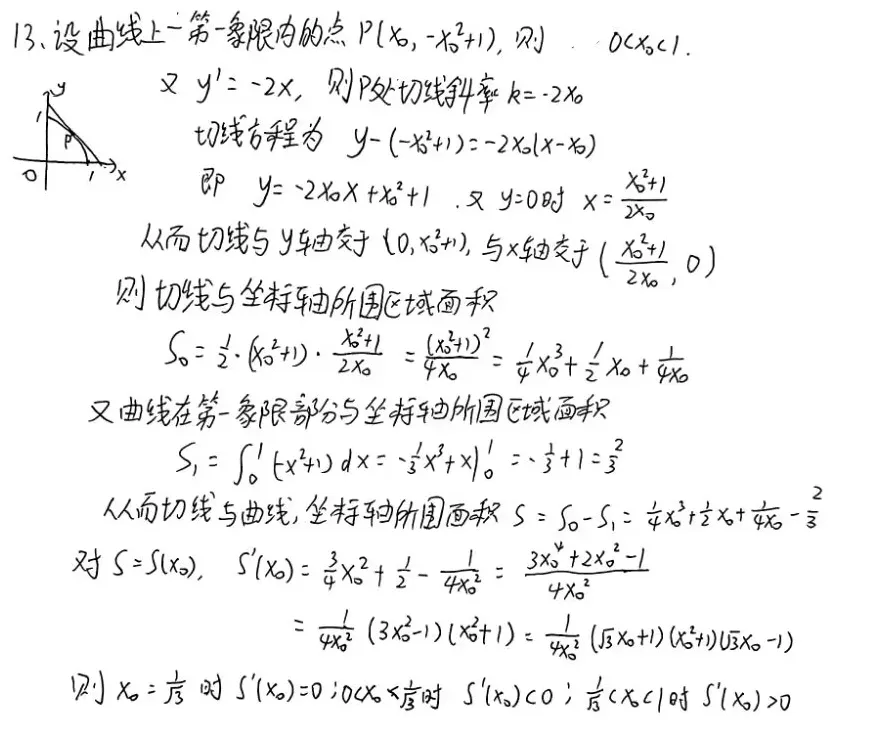 13、设曲线上一第一象限内的点 P(x₀, -x₀²+1), 则 0<x₀<1.
又 y' = -2x, 则P处切线斜率 k = -2x₀
切线方程为 y-(-x₀²+1) = -2x₀(x-x₀)
即 y = -2x₀x + x₀²+1 . 又 y=0时 x = \frac{x₀²+1}{2x₀}
从而切线与y轴交于 (0, x₀²+1), 与x轴交于 (\frac{x₀²+1}{2x₀}, 0)
y
1
P
0
1
x
则切线与坐标轴所围区域面积
S₀ = \frac{1}{2}·(x₀²+1)·\frac{x₀²+1}{2x₀} = \frac{(x₀²+1)²}{4x₀} = \frac{1}{4}x₀³ + \frac{1}{2}x₀ + \frac{1}{4x₀}
又曲线在第一象限部分与坐标轴所围区域面积
S₁ = ∫₀¹ (-x²+1) dx = -\frac{1}{3}x³+x|₀¹ = -\frac{1}{3}+1 = \frac{2}{3}
从而切线与曲线, 坐标轴所围面积 S = S₀ - S₁ = \frac{1}{4}x₀³ + \frac{1}{2}x₀ + \frac{1}{4x₀} - \frac{2}{3}
对 S=S(x₀), S'(x₀) = \frac{3}{4}x₀² + \frac{1}{2} - \frac{1}{4x₀²} = \frac{3x₀⁴+2x₀²-1}{4x₀²}
= \frac{1}{4x₀²} (3x₀²-1)(x₀²+1) = \frac{1}{4x₀²} (√3x₀+1)(x₀²+1)(√3x₀-1)
则 x₀ = \frac{1}{√3} 时 S'(x₀)=0 ; 0<x₀<\frac{1}{√3}时 S'(x₀)<0 ; \frac{1}{√3}<x₀<1时 S'(x₀)>0